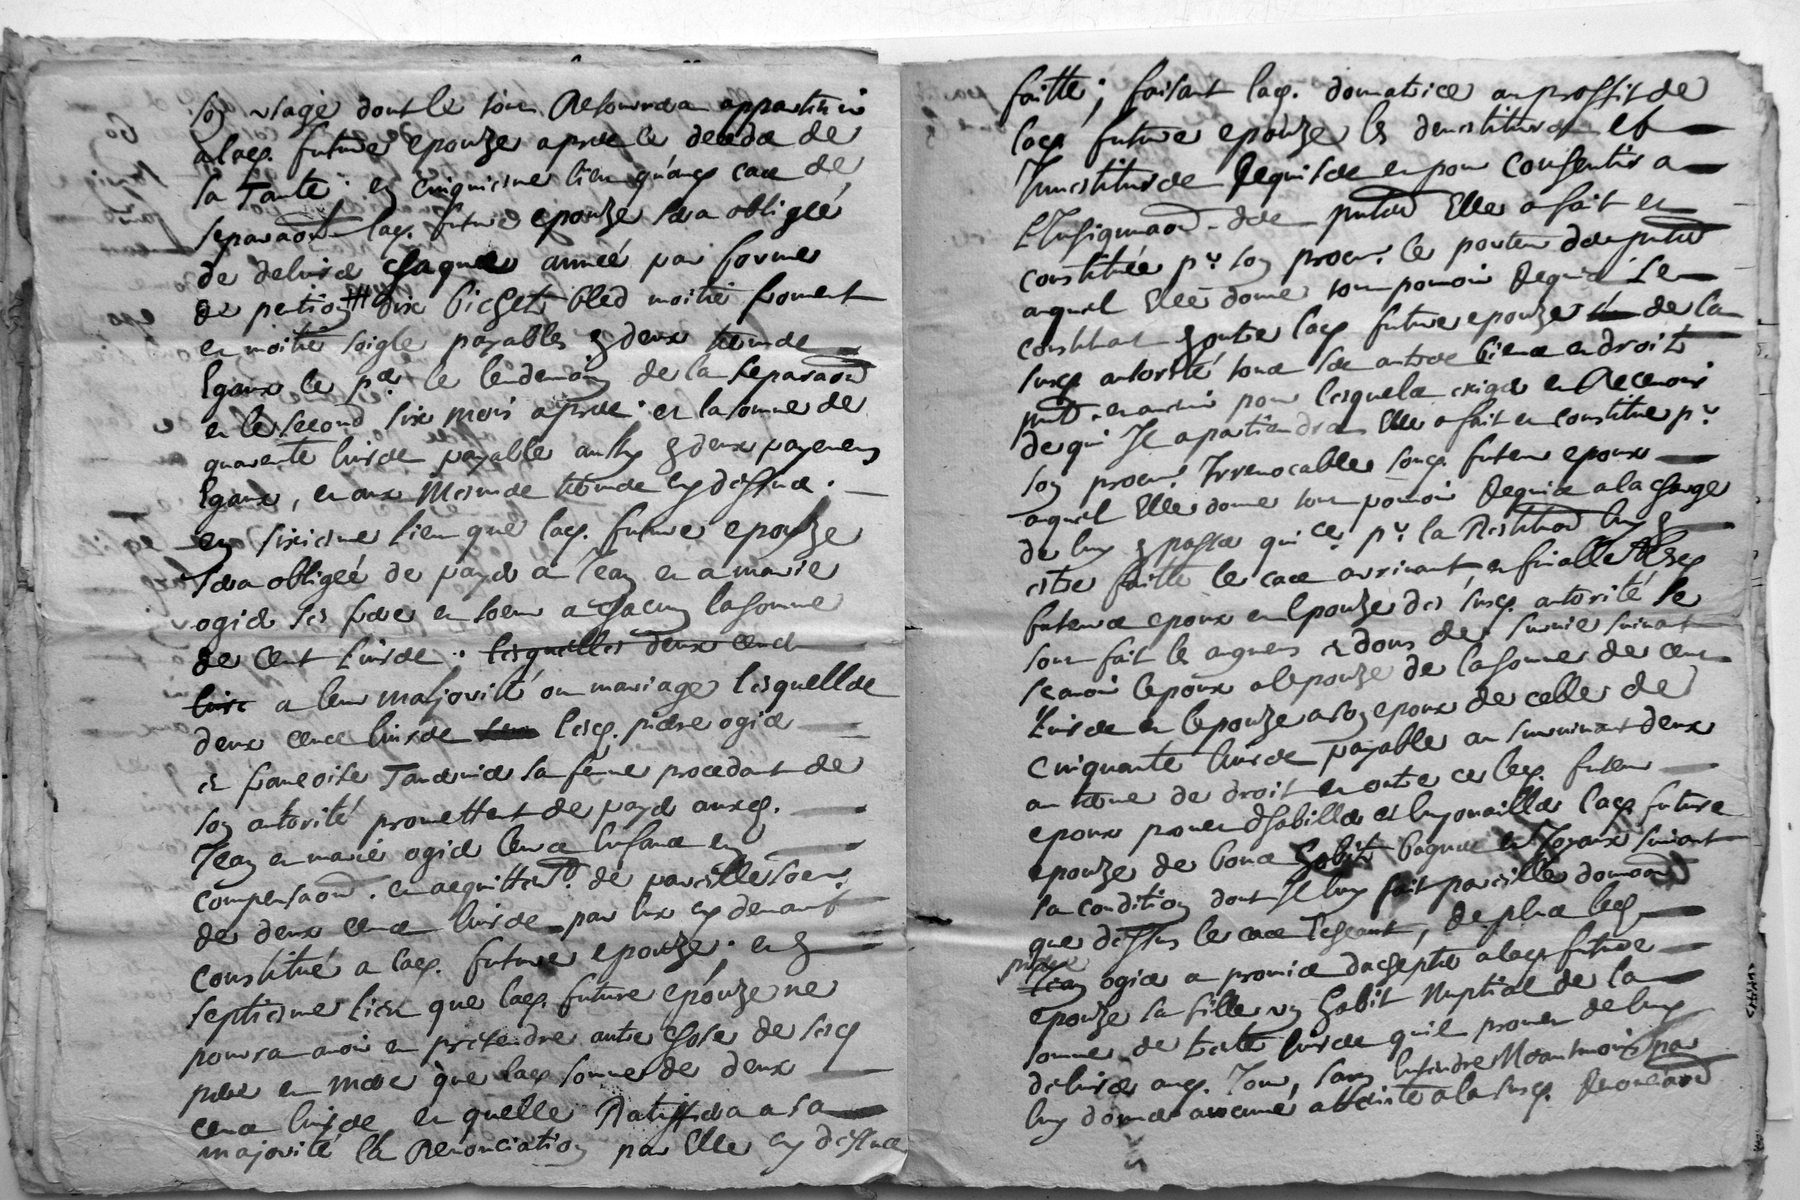 son usage dont le tout Retournera appartenir
a lad. future epouze apres le decedz de
sa Tante; en cinquieme lieu qu'aud. cas de
separaon lad. future epouze sera obligée
de delivrer chaque année par forme
de pention dix bichets bled moitié froment
et moitié soigle payables en deux termes
Egaux le pr. le lendemain de la separaon
et le second six mois apres; et la somme de
quarente livres payable aussy en deux payemens
Egaux, et aux Mesmes termes cy dessus.
en sixieme lieu que lad. future epouze
sera obligée de payer a Jean et a marie
ogier ses frere et soeur a chacun la somme
de cent Livres; lesquelles deux cents
livres a leur majorité ou mariage lesquelles
deux cents livres lesd. pierre ogier
et francoise Tavernier sa feme procedant de
son autorité promettent de payer auxd.
Jean et marie ogier leurs enfans en
compensaon. et acquittemt. de pareille som.
de deux cents livres par eux cy devant
constitué a lad. future epouze; et en
septieme lieu que lad. future epouze ne
pourra avoir et pretendre autre chose de sesd.
pere et mere que lad. somme de deux
cents livres et quelle Ratiffiera a sa
majorité la Renonciation par Elle cy dessus
faitte; faisant lad. donnatrice au proffit de
lad. future epouze les devestitures et
Investitures Requises et pour consentir a
L'Insignuaon. des pntes Elle a fait et
constituée pr. son procur. le porteur des pntes
auquel Elle donne tout pouvoir Requis se
constituant en outre lad. future epouze de la
susd. autorité tous ses autres biens et droits
pnts. et avenir pour lesquels exiger et Recevoir
de qui Il apartiendra Elle a fait et constitue pr.
son procur. Irrevocable sond. futur epoux
auquel Elle donne tout pouvoir Requis a la charge
de luy en passer quice. pr. la Restituon luy en
estre faitte le cas arrivant, et finallement lesd.
futurs epoux et Epouze des susd. autorité se
sont fait les augmens et dons de survie suivant
scavoir lepoux a lepouze de la somme de cent
Livres et lepouze a son epoux de celle de
cinquante livres payable au survivant deux
au terme de droit et outre ce led. futur
epoux promet dhabiller et enjouailler lad. future
epouze de bons habits bagues et Joyaux suivant
sa condition dont Il luy fait pareille donnaon
que dessus le cas Escheant, de plus led.
pierre
Jean ogier a promis dachepter a lad. future
epouze sa fille un habit Nuptial de la
somme de trente livres quil promet de luy
delivrer aud. Jour, sans Entendre Neantmoins par
luy donner aucune atteinte a la susd. Renonciaon